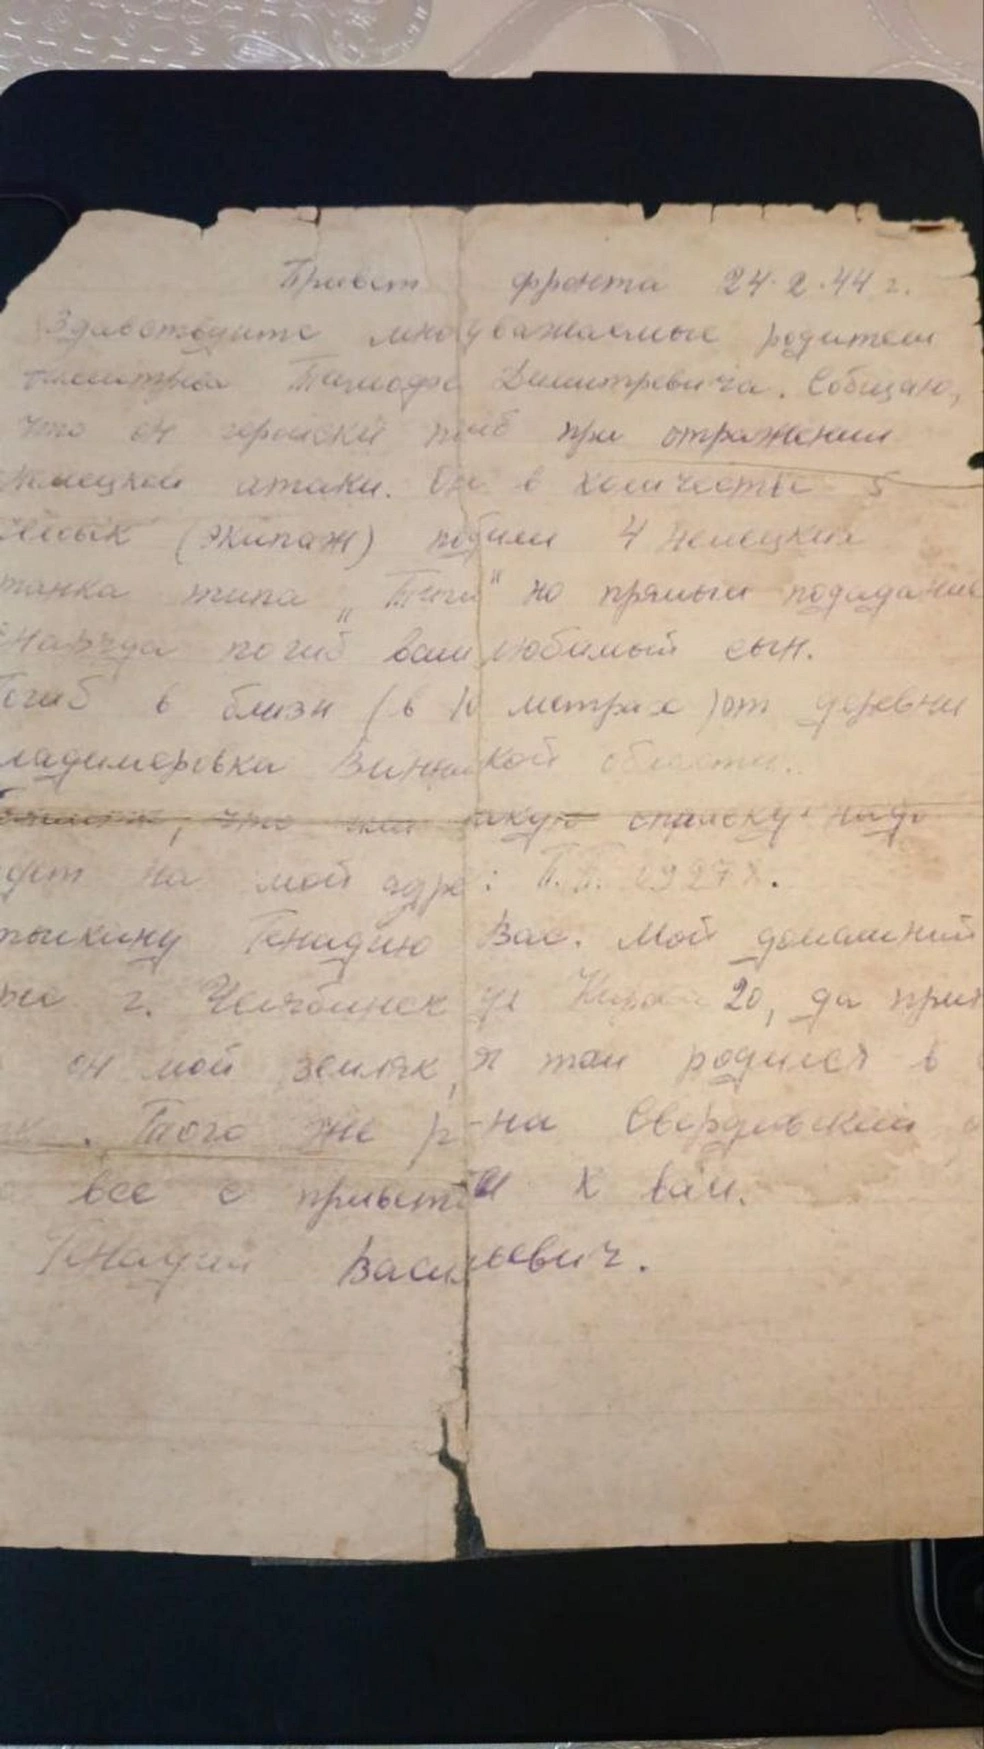 Привет фронта 24.2.44 г.
Здавствуите многуважаемые родители
Тимофе Дмитревича. Собщаю,
что он геройски погиб при отражении
немецкой атаки. Он в количесты 5
(экипаж) побили 4 немецких
танка типа „Тигр" но прямым пададание
погиб ваш любимый сын.
погиб в близи (в 10 метрах) от деревни
ладимеровка Виницкой области.
что такую справку надо
на мой адре: П.П. 29278.
Генадию Вас. Мой домашний
г. Челябинск ул Кирова 20, да при
он мой земляк, я там родился в
Того же р-на Свердловский
все с приветом К вам.
Генадий Васильевич.